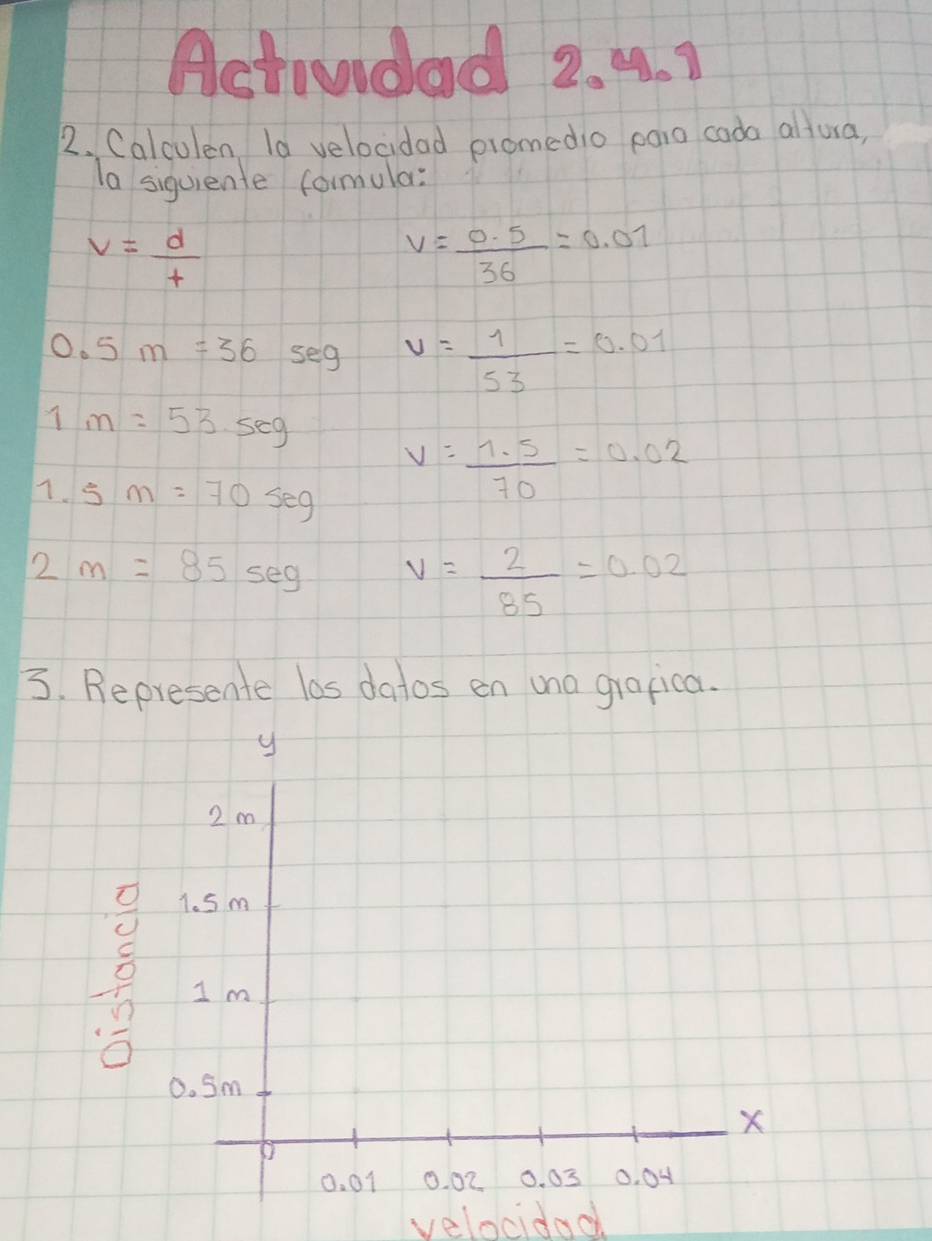 Actividad 2.4.1
2. Calculen la velocidad promedio para cada altura,
la siguiente formula:
v = d/t
v = 0.5/36 = 0.01
0.5 m = 36 seg
v = 1/53 = 0.01
1 m = 53 seg
v = 1.5/70 = 0.02
1.5 m = 70 seg
2 m = 85 seg
v = 2/85 = 0.02
3. Represente los datos en una grafica.
y
2 m
1.5 m
Distancia
1 m
0.5m
x
0
0.01 0.02 0.03 0.04
velocidad